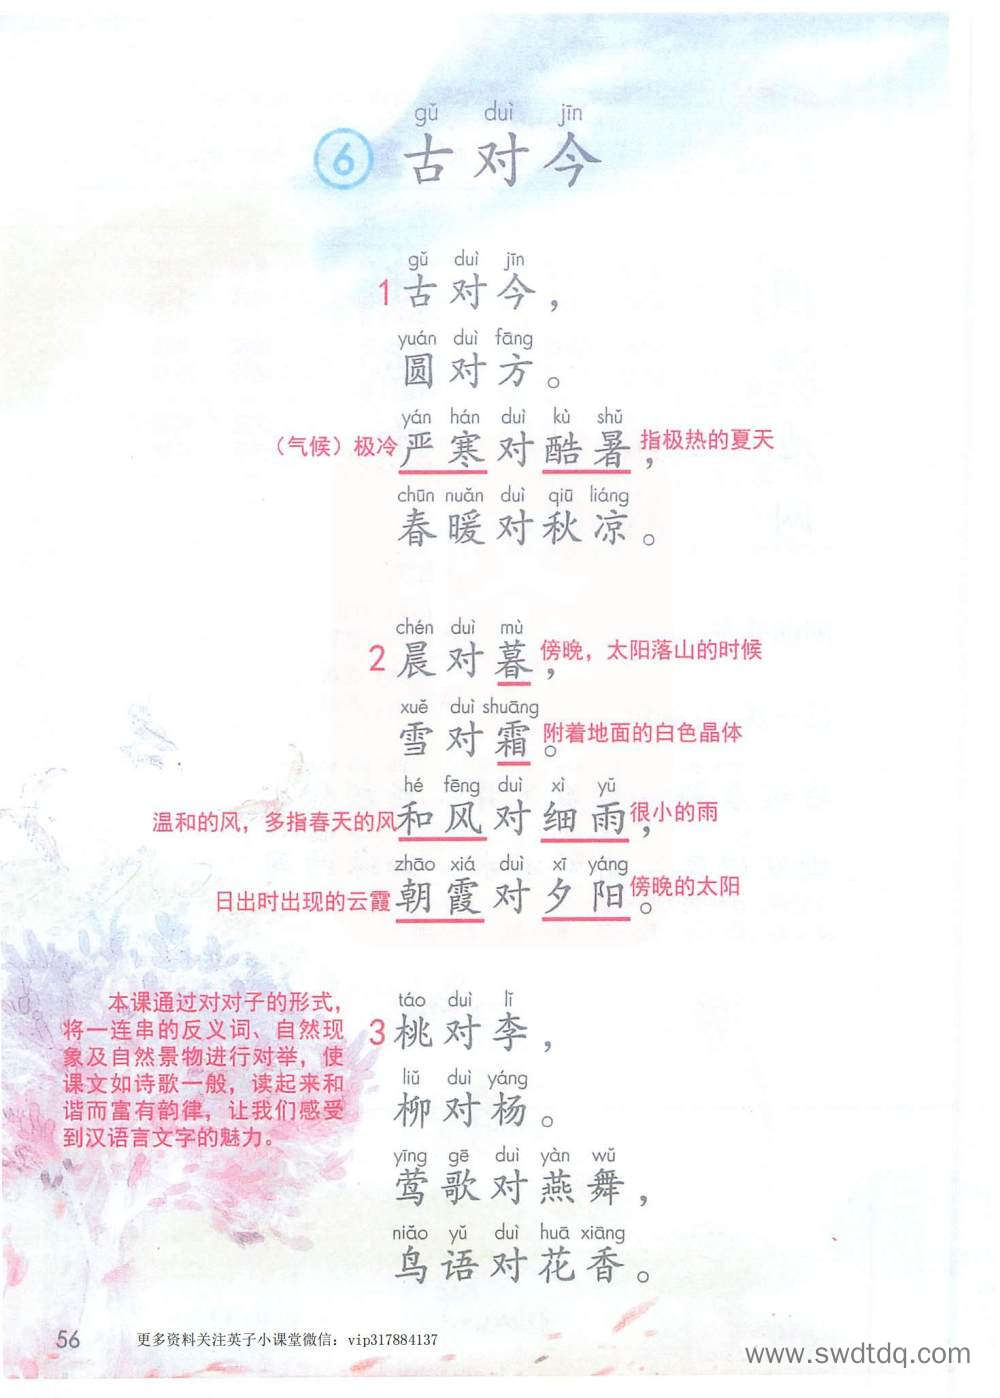 gǔ duì jīn
6 古对今
gǔ duì jīn
1 古对今，
yuán duì fāng
圆对方。
yán hán duì kù shǔ
（气候）极冷 严寒对酷暑， 指极热的夏天
chūn nuǎn duì qiū liáng
春暖对秋凉。
chén duì mù
2 晨对暮， 傍晚，太阳落山的时候
xuě duì shuāng
雪对霜。 附着地面的白色晶体
hé fēng duì xì yǔ
温和的风，多指春天的风 和风对细雨， 很小的雨
zhāo xiá duì xī yáng
日出时出现的云霞 朝霞对夕阳。 傍晚的太阳
táo duì lǐ
3 桃对李，
liǔ duì yáng
柳对杨。
yīng gē duì yàn wǔ
莺歌对燕舞，
niǎo yǔ duì huā xiāng
鸟语对花香。
本课通过对对子的形式，
将一连串的反义词、自然现
象及自然景物进行对举，使
课文如诗歌一般，读起来和
谐而富有韵律，让我们感受
到汉语言文字的魅力。
56
更多资料关注英子小课堂微信：vip317884137
www.swdtdq.com